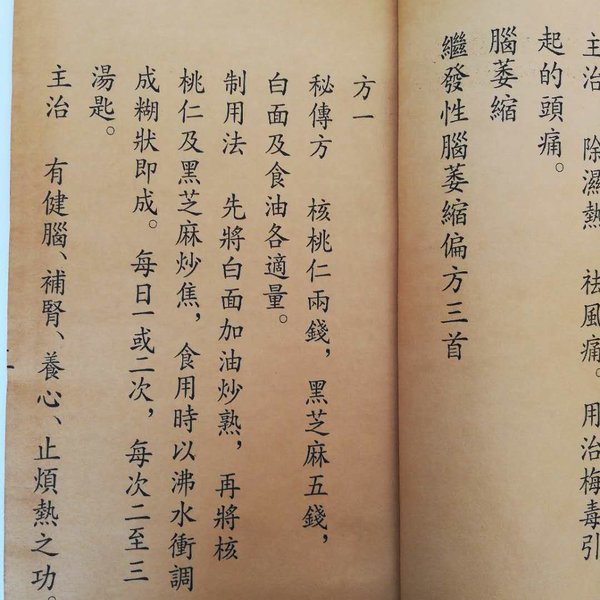 主治　除濕熱　祛風痛。用治梅毒引
起的頭痛。
腦萎縮
繼發性腦萎縮偏方三首
方一
秘傳方　核桃仁兩錢，黑芝麻五錢，
白面及食油各適量。
制用法　先將白面加油炒熟，再將核
桃仁及黑芝麻炒焦，食用時以沸水衝調
成糊狀即成。每日一或二次，每次二至三
湯匙。
主治　有健腦、補腎、養心、止煩熱之功。